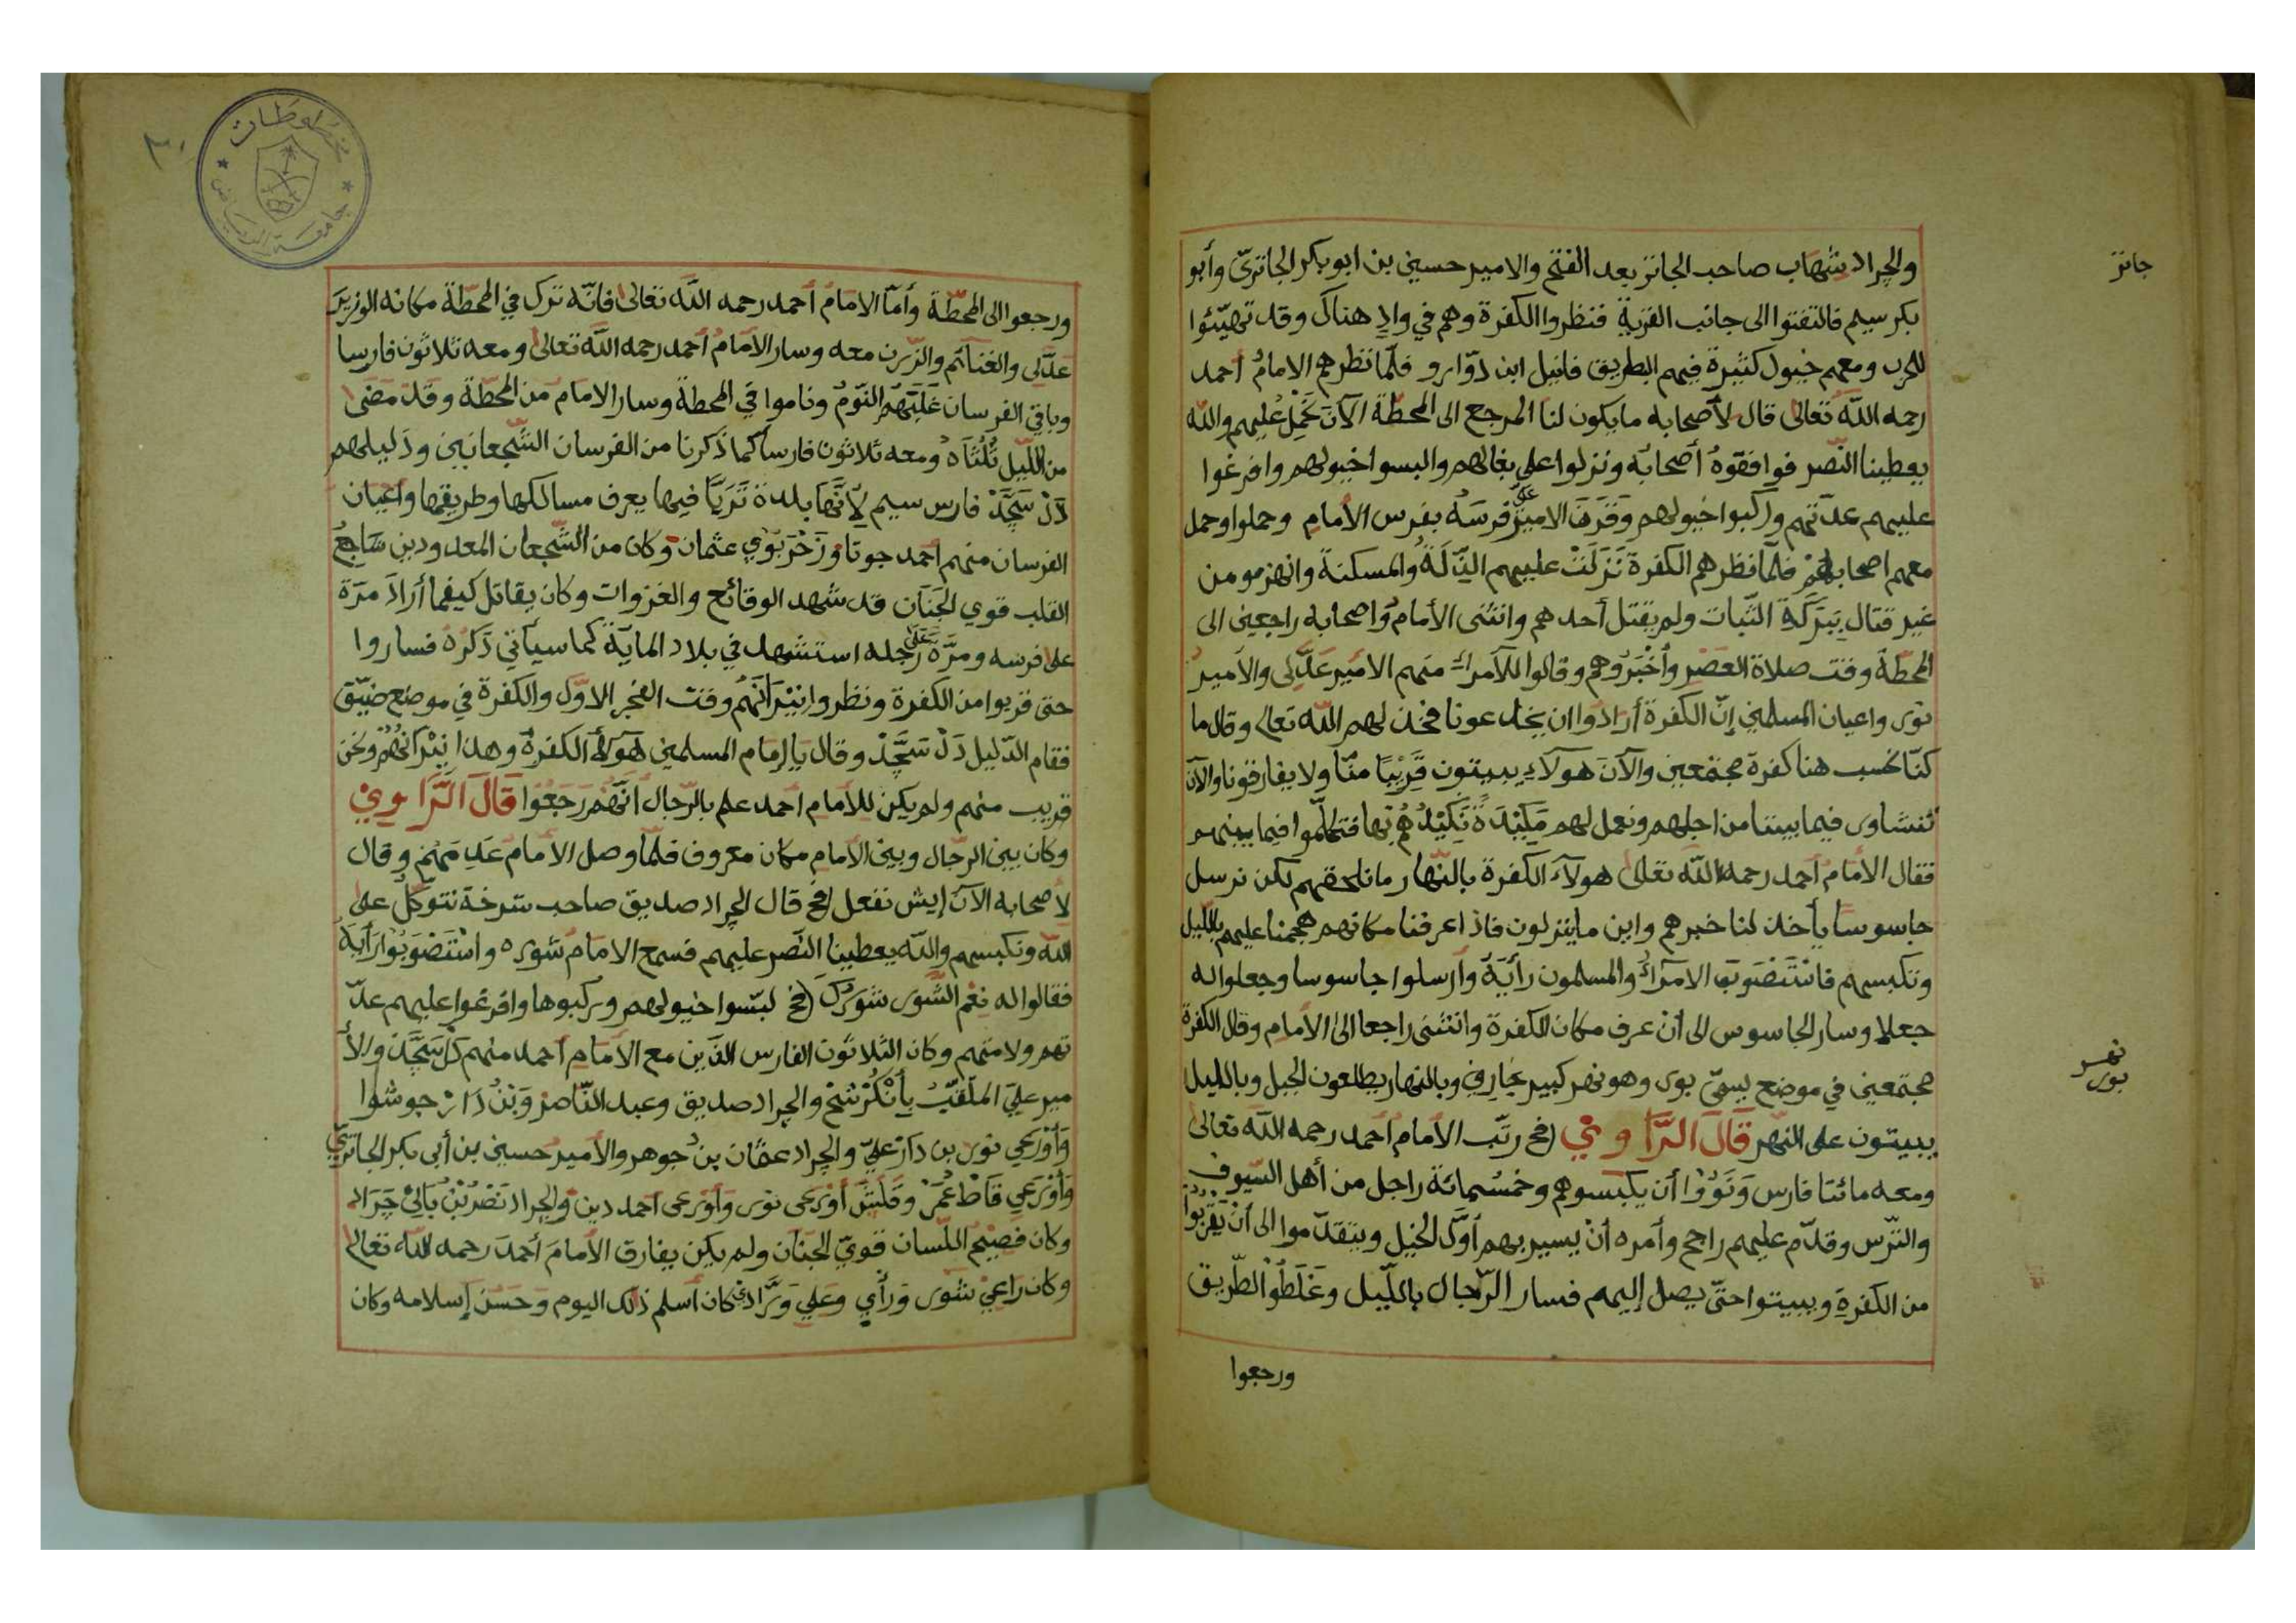 والجراد شهاب صاحب الجاتز بعد الفتح والامير حسين بن ابو بكر الجاتري وأبو
بكر سيم فالتفتوا الى جانب القرية فنظروا الكفرة وهم في وادٍ هناك وقد تهيّئوا
للحرب ومعهم خيول كثيرة فيهم البطريق فانيل ابن دوّارو فلمّا نظرهم الامامُ أحمد
رحمه الله تعالى قال لأصحابه ما يكون لنا المرجع الى المحطّة الآن نحمل عليهم والله
يعطينا النّصر فوافقوهُ أصحابُه ونزلوا على بغالهم والبسوا خيولهم وافرغوا
عليهم عدّتهم وركبوا خيولهم وقرن الامير علي فرسَه بفرس الأمام وحملوا وحمل
معهم اصحابهم فلمّا نظرهم الكفرة نَزَلَتْ عليهم الذّلّة والمسكنة وانهزمو من
غير قتال ببركة الثّبات ولم يقتل أحدهم وانثنى الأمام وأصحابه راجعين الى
المحطّة وقت صلاة العصر وأخبروهم وقالوا للأمراء منهم الأمير عدّلى والأمير
نوى واعيان المسلمين إنّ الكفرة أرادوا ان يخدعونا فخذلهم الله تعالى وقال ما
كنّا نحسب هنا كفرة مجتمعين والآن هولاء يبيتون قريبًا منّا ولا يفارقونا والآن
نتشاور فيما بيننا من اجلهم ونعمل لهم مكيدة نكيدهم بها فتكلّموا فيما بينهم
فقال الأمام أحمد رحمه الله تعالى هولاء الكفرة بالنّهار ما نلحقهم لكن نرسل
جاسوسا يأخذ لنا خبرهم واين ما ينزلون فاذا عرفنا مكانهم هجمنا عليهم بالليل
ونكبسهم فاستصوب الامراء والمسلمون رأيه وأرسلوا جاسوسا وجعلوا له
جعلا وسار الجاسوس الى أن عرف مكان الكفرة وانثنى راجعا الى الأمام وقال الكفرة
مجتمعين في موضع يسمّى بوى وهو نهر كبير يجارى وبالنهار يطلعون الجبل وبالليل
يبيتون على النهر قال الرّاوي فح رتّب الأمام أحمد رحمه الله تعالى
ومعه مائتا فارس ونووا أن يكبسوهم وخمسمائة راجل من أهل السّيوف
والتّرس وقدّم عليهم راجح وأمره أن يسير بهم أوّل الخيل ويتقدّموا الى أن يقربوا
من الكفرة ويبيتوا حتّى يصل إليهم فسار الرّجال باللّيل وغلطوا الطّريق
ورجعوا
جاتز
نهر
بوى
ورجعوا الى المحطّة وأمّا الامام أحمد رحمه الله تعالى فانّه ترك في المحطّة مكانه الوزير
عدّلى والغنائم والزّرن معه وسار الأمام أحمد رحمه الله تعالى ومعه ثلاثون فارسا
وباقي الفرسان غلبهم النّوم وناموا في المحطة وسار الامام من المحطّة وقد مضى
من اللّيل ثُلُثاه ومعه ثلاثون فارسا كما ذكرنا من الفرسان الشّجعانين ودليلهم
دَلْ سَجَّدْ فارس سيم لأنّها بلدة تَرَبَّا فيها يعرف مسالكها وطريقها واعيان
الفرسان منهم أحمد جوتا وزحربوي عثمان وكان من الشّجعان المعدودين شاجع
القلب قوي الجنان قد شهد الوقائع والغزوات وكان يقاتل كيفما أراد مرّة
على فرسه ومرّة على رجله استشهد في بلاد الماية كما سيأتي ذكره فساروا
حتى قربوا من الكفرة ونظروا نيرانهم وقت الفجر الاوّل والكفرة في موضع ضيّق
فقام الدّليل دَلْ سَجَّدْ وقال يا إمام المسلمين هولاء الكفرة وهذا نيرانهم ونحن
قريب منهم ولم يكن للأمام احمد علم بالرّجال أنّهم رجعوا قال الرّاوي
وكان بين الرّجال وبين الأمام مكان معروف فلمّا وصل الأمام عَدِمَهُم وقال
لأصحابه الآن إيش نفعل فح قال الجراد صديق صاحب شرخة نتوكّل على
الله ونكبسهم والله يعطينا النّصر عليهم فسمع الامام شوره واستصوبوا رأيه
فقالوا له نِعْم الشّور شورك فح لبّسوا خيولهم وركبوها وافرغوا عليهم عدّ
تهم ولامتهم وكان الثلاثون الفارس الذين مع الامام أحمد منهم دل سَجَّد والأ
مير علي الملقّب بأنكرشخ والجراد صديق وعبد النّاصر وبن دار جوشوا
وأورعي نور بن دار علي والجراد عثمان بن جوهر والأمير حسين بن أبي بكر الجاتري
وأورعي قاط عمر وقلتل أورعى نور وأورعى أحمد دين والجراد نصر بن بالي جراد
وكان فصيح اللّسان قويّ الجنان ولم يكن يفارق الأمام أحمد رحمه الله تعالى
وكان راعي شور ورأي وعلي ورّادي كان أسلم ذلك اليوم وحسن إسلامه وكان
مخطوطات
جامعة الرياض